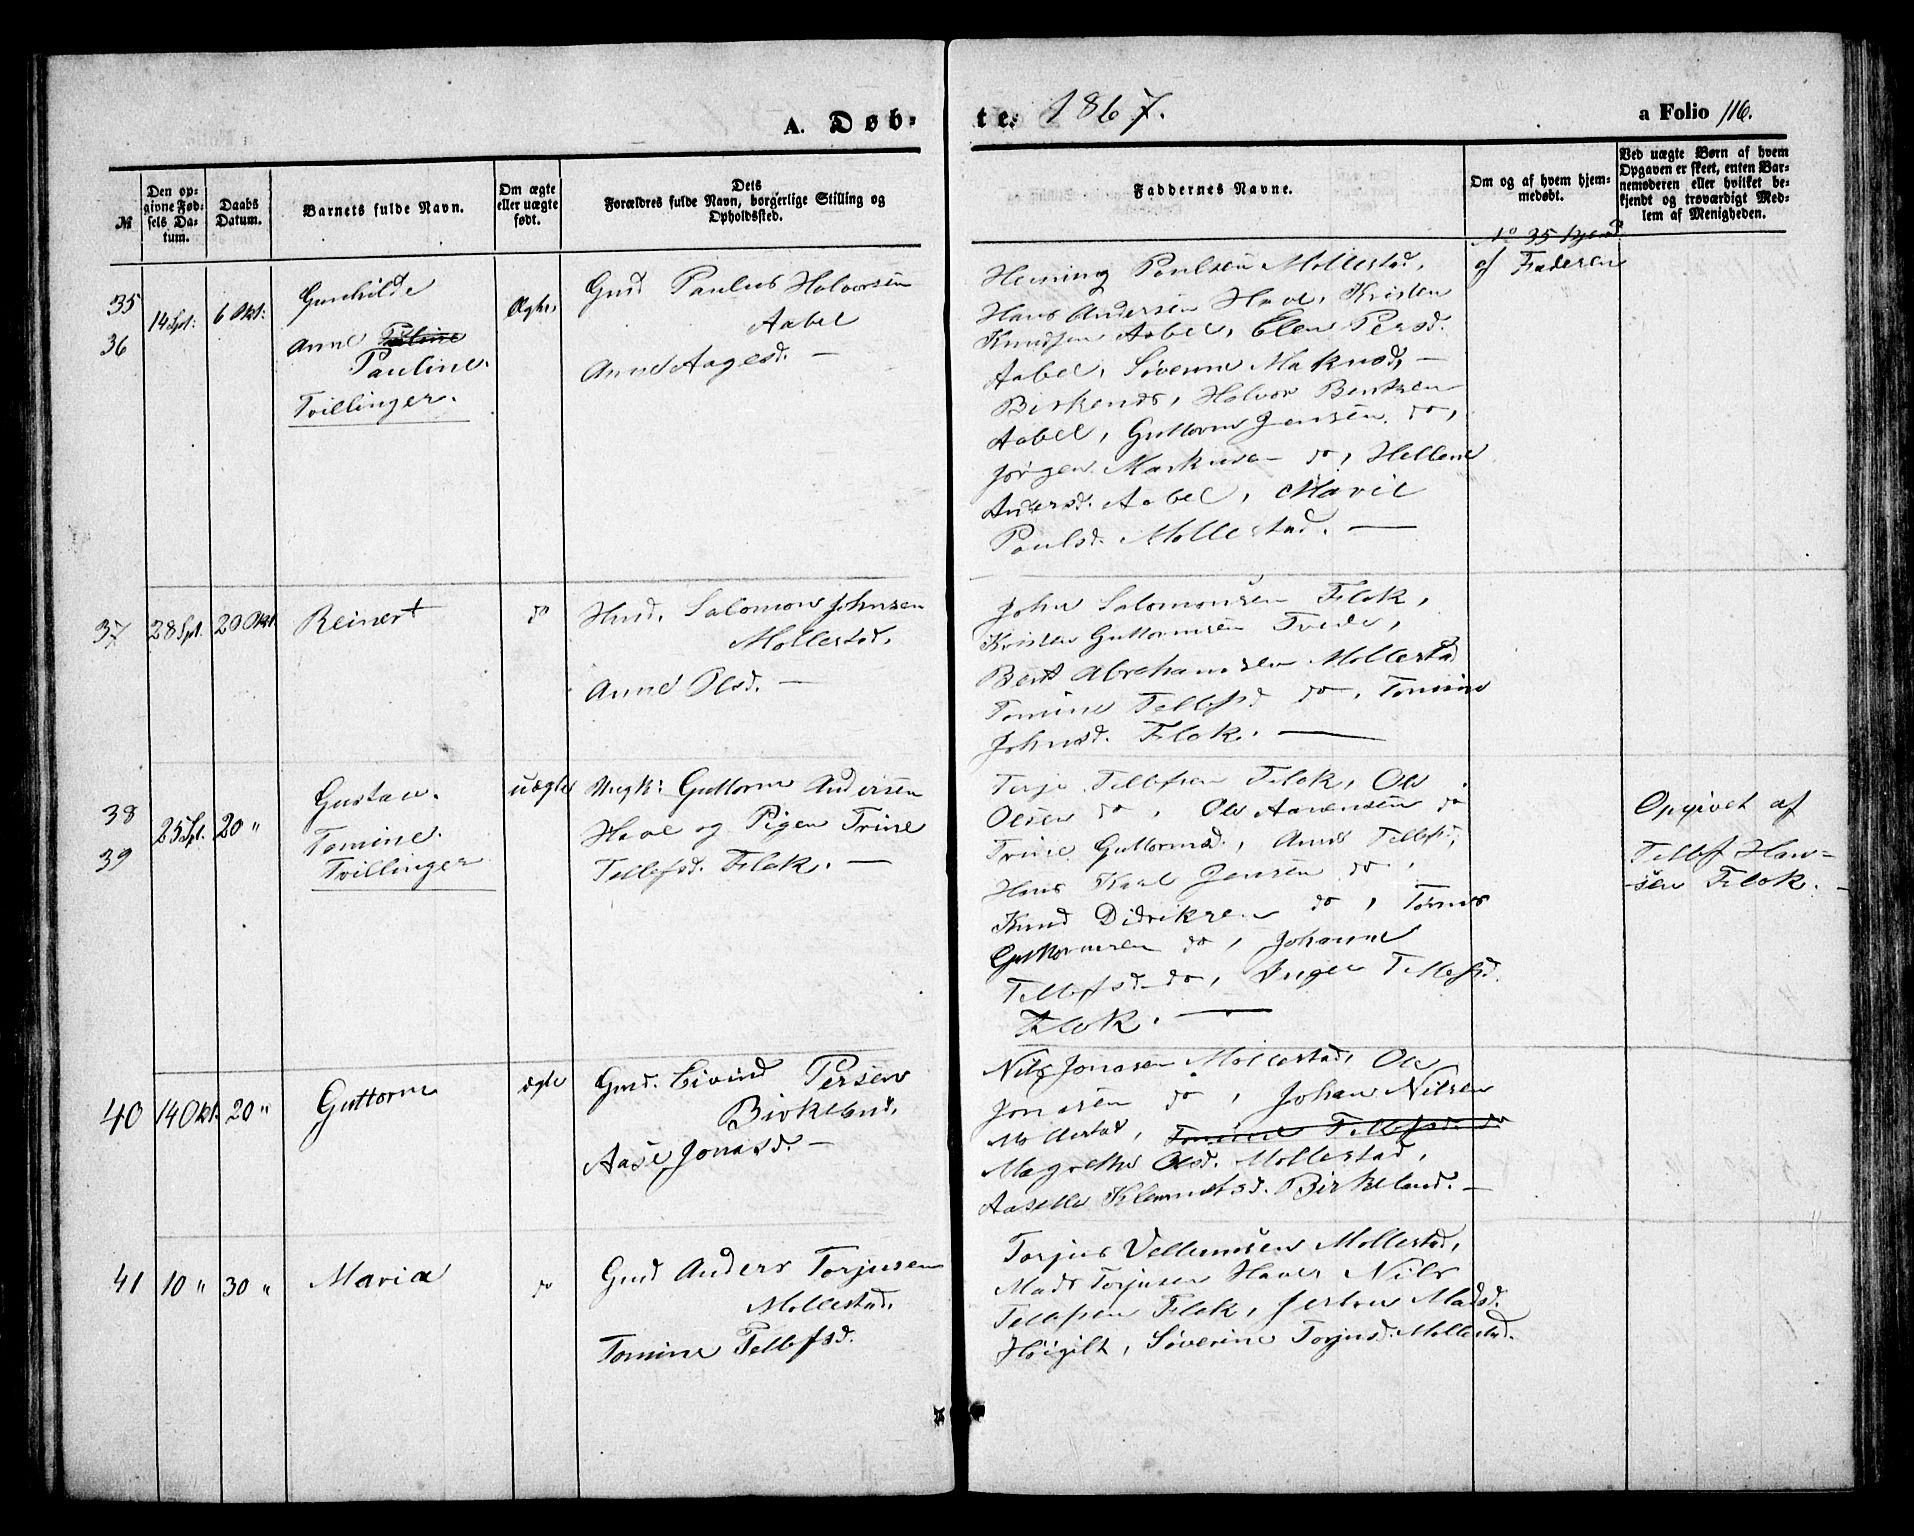 A. Døb-
te. 1867.
a Folio 116.
№
Den op-
givne Fød-
sels Da-
tum.
Daabs
Datum.
Barnets fulde Navn.
Om ægte
eller uægte
født.
Dets
Forældres fulde Navn, borgerlige Stilling og
Opholdssted.
Faddernes Navne.
Om og af hvem hjem-
medøbt.
Ved uægte Børn af hvem
Opgaven er skeet, enten Bar-
nemoderen eller hvilket be-
kjendt og troværdigt Med-
lem af Menigheden.
35
36
14 Spt:
6 Okt:
Gunhilde
Anne
Pauline.
Tvillinger.
Ægte,
Gmd Paulus Halvorsen
Aabel
Anne Aagesd. —
Heming Poulsen Mollestad,
Hans Andersen Have, Kristen
Knudsen Aabel, Elen Persd.
Aabel, Søverine Markusd, —
Birkenes, Halvor Bentsen
Aabel, Guttorm Jensen do,
Jörgen Markusen do, Hellene
Andersd. Aabel, Marie
Poulsd. Mollestad. —
No 35 hjemd
af Faderen
37
28 Spt.
20 Okt
Reinert
do
Husd. Salomon Johnsen
Mollestad,
Anne Olsd. —
John Salomonsen Flak,
Kristen Guttormsen Tvede,
Bent Abrahamsen Mollestad
Tomine Tellefsd do, Tomine
Johnsd. Flak. —
38
39
25 Spt.
20 "
Gustav.
Tomine.
Tvillinger
uægte
Ungk: Guttorm Andersen
Have og Pigen Trine
Tellefsd. Flak. —
Terje Tellefsen Flak, Ole
Olsen do, Ole Aanensen do
Trine Guttormsd., Anne Tellefsd,
Hans Karl Jensen do,
Knud Didriksen do, Tomas
Guttormsen do, Johanne
Tellefsd do, Inger Tellefsd.
Flak. —
Opgivet af
Tellef Han-
sen Flak. —
40
14 Okt.
20 "
Guttorm
ægte
Gmd. Eivind Persen
Birkeland,
Aase Jonasd. —
Nils Jonasen Mollestad, Ole
Jonasen do, Johan Nilsen
Mollestad, Tomine Tellefsd. do
Magrethe Olsd. Mollestad,
Aaselle Klemmetsd. Birkeland. —
41
10 "
30 "
Maria
do
Gmd Anders Torjusen
Mollestad.
Tomine Tellefsd.
Torjus Vellumsen Mollestad,
Mads Torjusen Haver Nils
Tellefsen Flak, Jerton Madsd.
Höigilt, Søverine Torjusd. Mollestad.